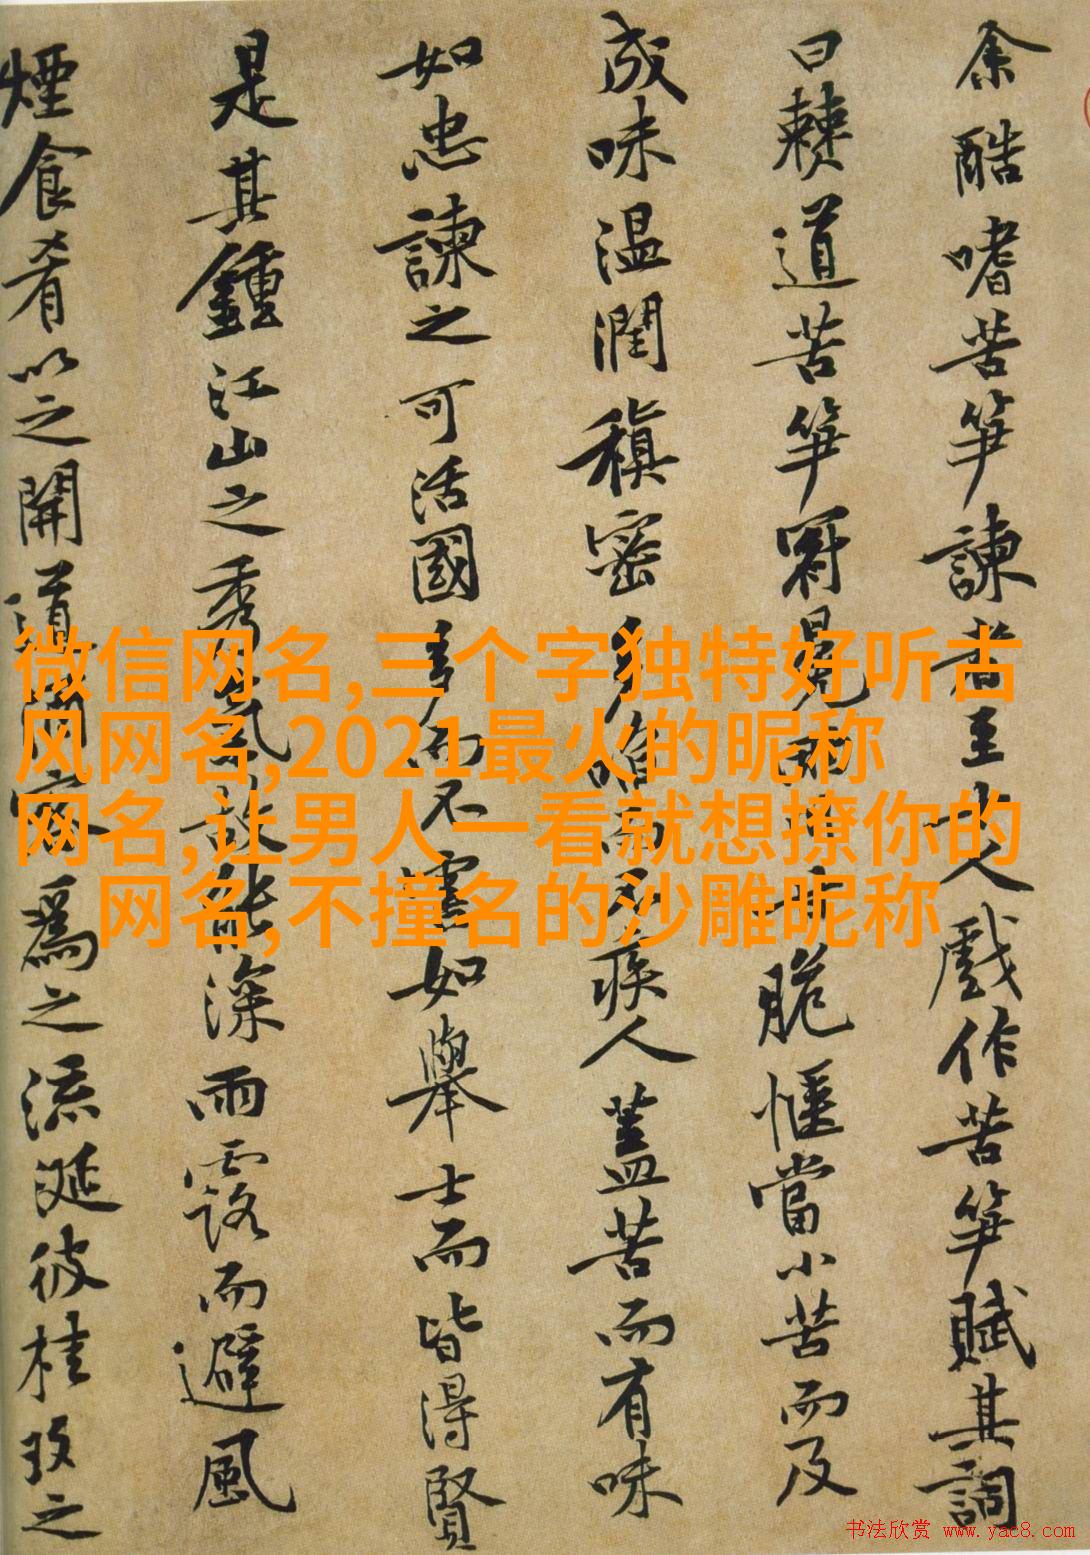 余酷嗜苦笋諫者至十人戲作苦笋賦其詞
曰僰道苦笋冠冕兩川甘脆愜當小苦而及
成味温潤稹密多啗而不疾人蓋苦而有味
如忠諫之可活國多而不害如舉士而皆得賢
是其鍾江山之秀氣故能深雨露而避風
煙食肴以之開道酒客為之流涎彼桂玫之
微信网名,三个字独特好听古
风网名,2021最火的昵称
网名,让男人一看就想撩你的
网名,不撞名的沙雕昵称
书法欣赏 www.yac8.com